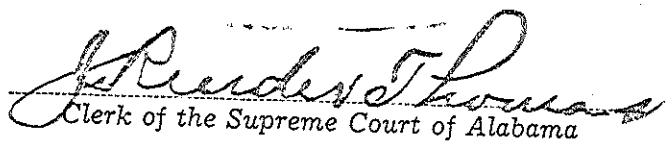 J. Render Thomas
Clerk of the Supreme Court of Alabama